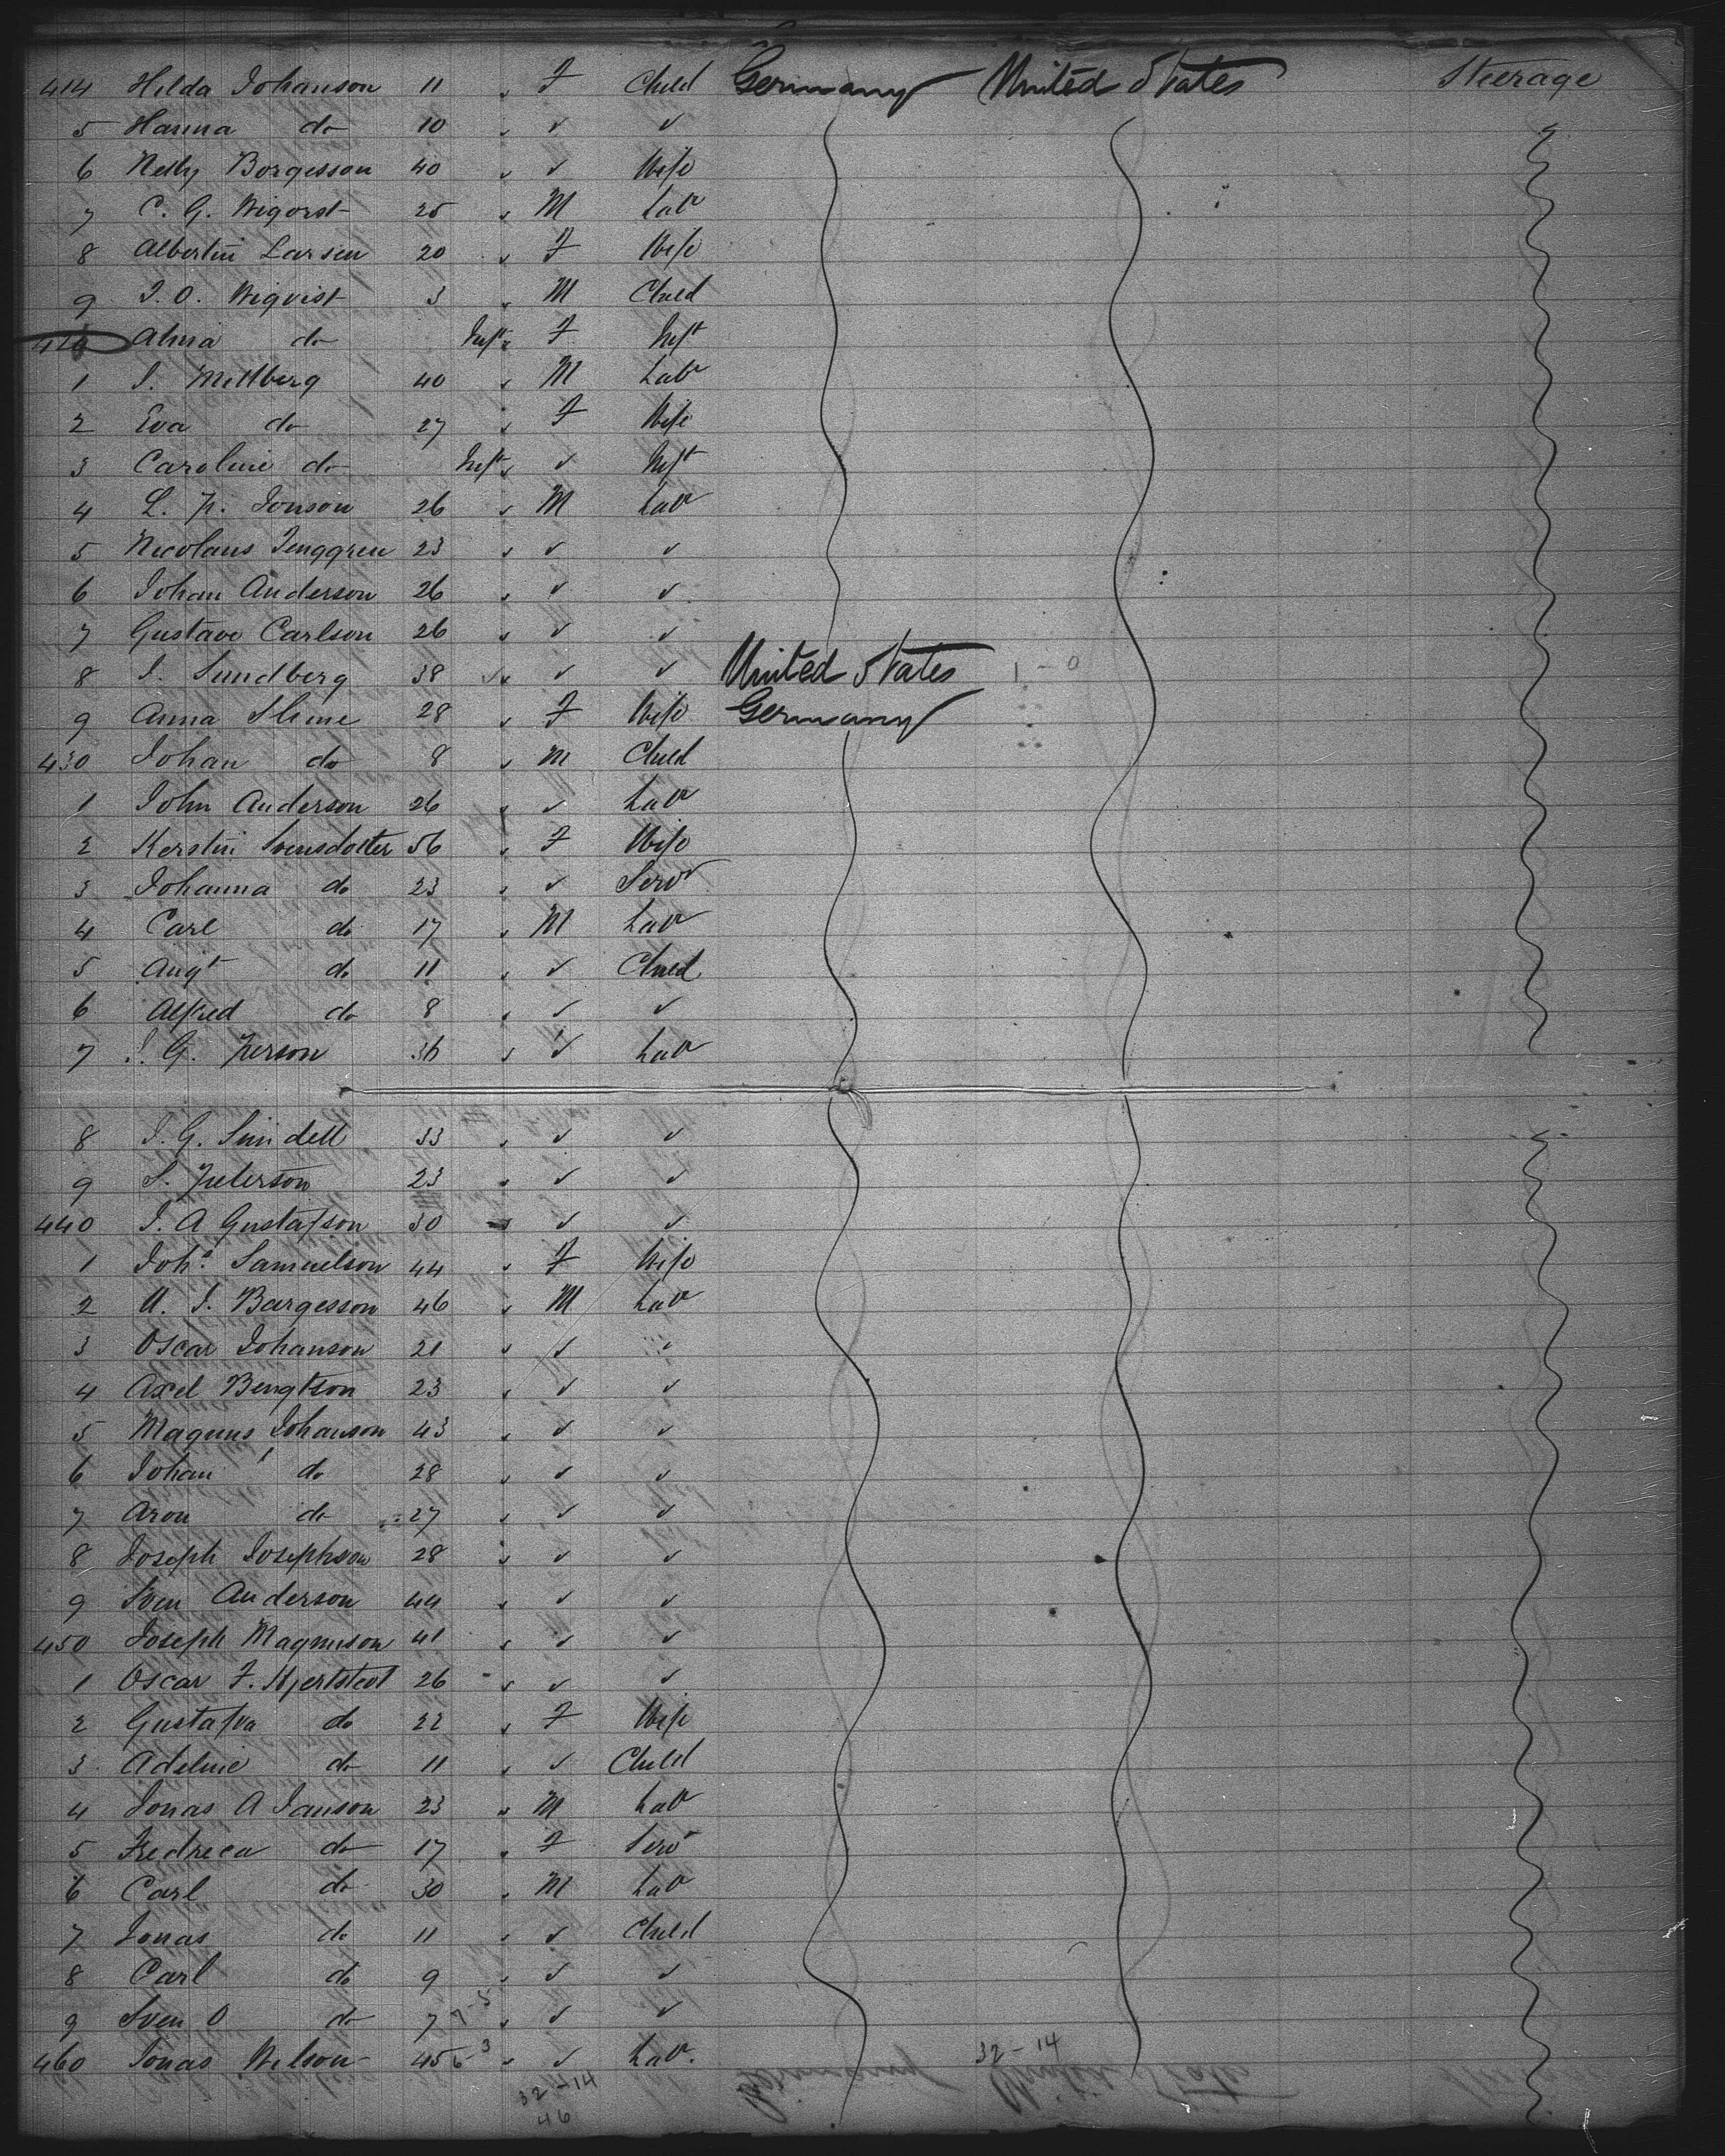 414 Hilda Johanson 11 " F Child Germany United States Steerage
5 Hanna do 10 " ✓ ✓
6 Nelly Borgesson 40 " ✓ Wife
7 C. G. Wigorst 25 " M Labr
8 Albertin Larsen 20 " F Wife
9 J. O. Wiqvist 3 " M Child
Alma do Inft " F Inft
1 J. Mellberg 40 " M Labr
2 Eva do 27 " F Wife
3 Caroline do Inft " ✓ Inft
4 L. P. Jonson 26 " M Labr
5 Nicolaus Tenggren 23 " ✓ ✓
6 Johan Anderson 26 " ✓ ✓
7 Gustave Carlson 26 " ✓ ✓
8 J. Sundberg 38 " ✓ ✓ United States 1 - 0
9 Anna 28 " F Wife Germany
430 Johan do 8 " M Child
1 John Anderson 26 " ✓ Labr
2 Kerstin Svensdotter 56 " F Wife
3 Johanna do 23 " ✓ Servt
4 Carl do 17 " M Labr
5 Augt do 11 " ✓ Child
6 Alfred do 8 " ✓ ✓
7 J. G. Person 36 " ✓ Labr
8 J. G. Sundell 33 " ✓ ✓
9 S. Peterson 23 " ✓ ✓
440 J. A Gustafson 30 " ✓ ✓
1 Joha Samuelson 44 " F Wife
2 A. J. Bargesson 46 " M Labr
3 Oscar Johanson 21 " ✓ ✓
4 Axel Bengtson 23 " ✓ ✓
5 Magnus Johanson 43 " ✓ ✓
6 Johan do 28 " ✓ ✓
7 Aron do 27 " ✓ ✓
8 Joseph Josephson 28 " ✓ ✓
9 Sven Anderson 44 " ✓ ✓
450 Joseph Magnuson 41 " ✓ ✓
1 Oscar F. Hjertstedt 26 " ✓ ✓
2 Gustafva do 22 " F Wife
3 Adeline do 11 " ✓ Child
4 Jonas A Janson 23 " M Labr
5 Fredreca do 17 " F Servt
6 Carl do 30 " M Labr
7 Jonas do 11 " ✓ Child
8 Carl do 9 " ✓ ✓
9 Sven O do 7 7-5 " ✓ ✓
460 Jonas Nelson 45 6-3 " ✓ Labr. 32-14
32-14
46